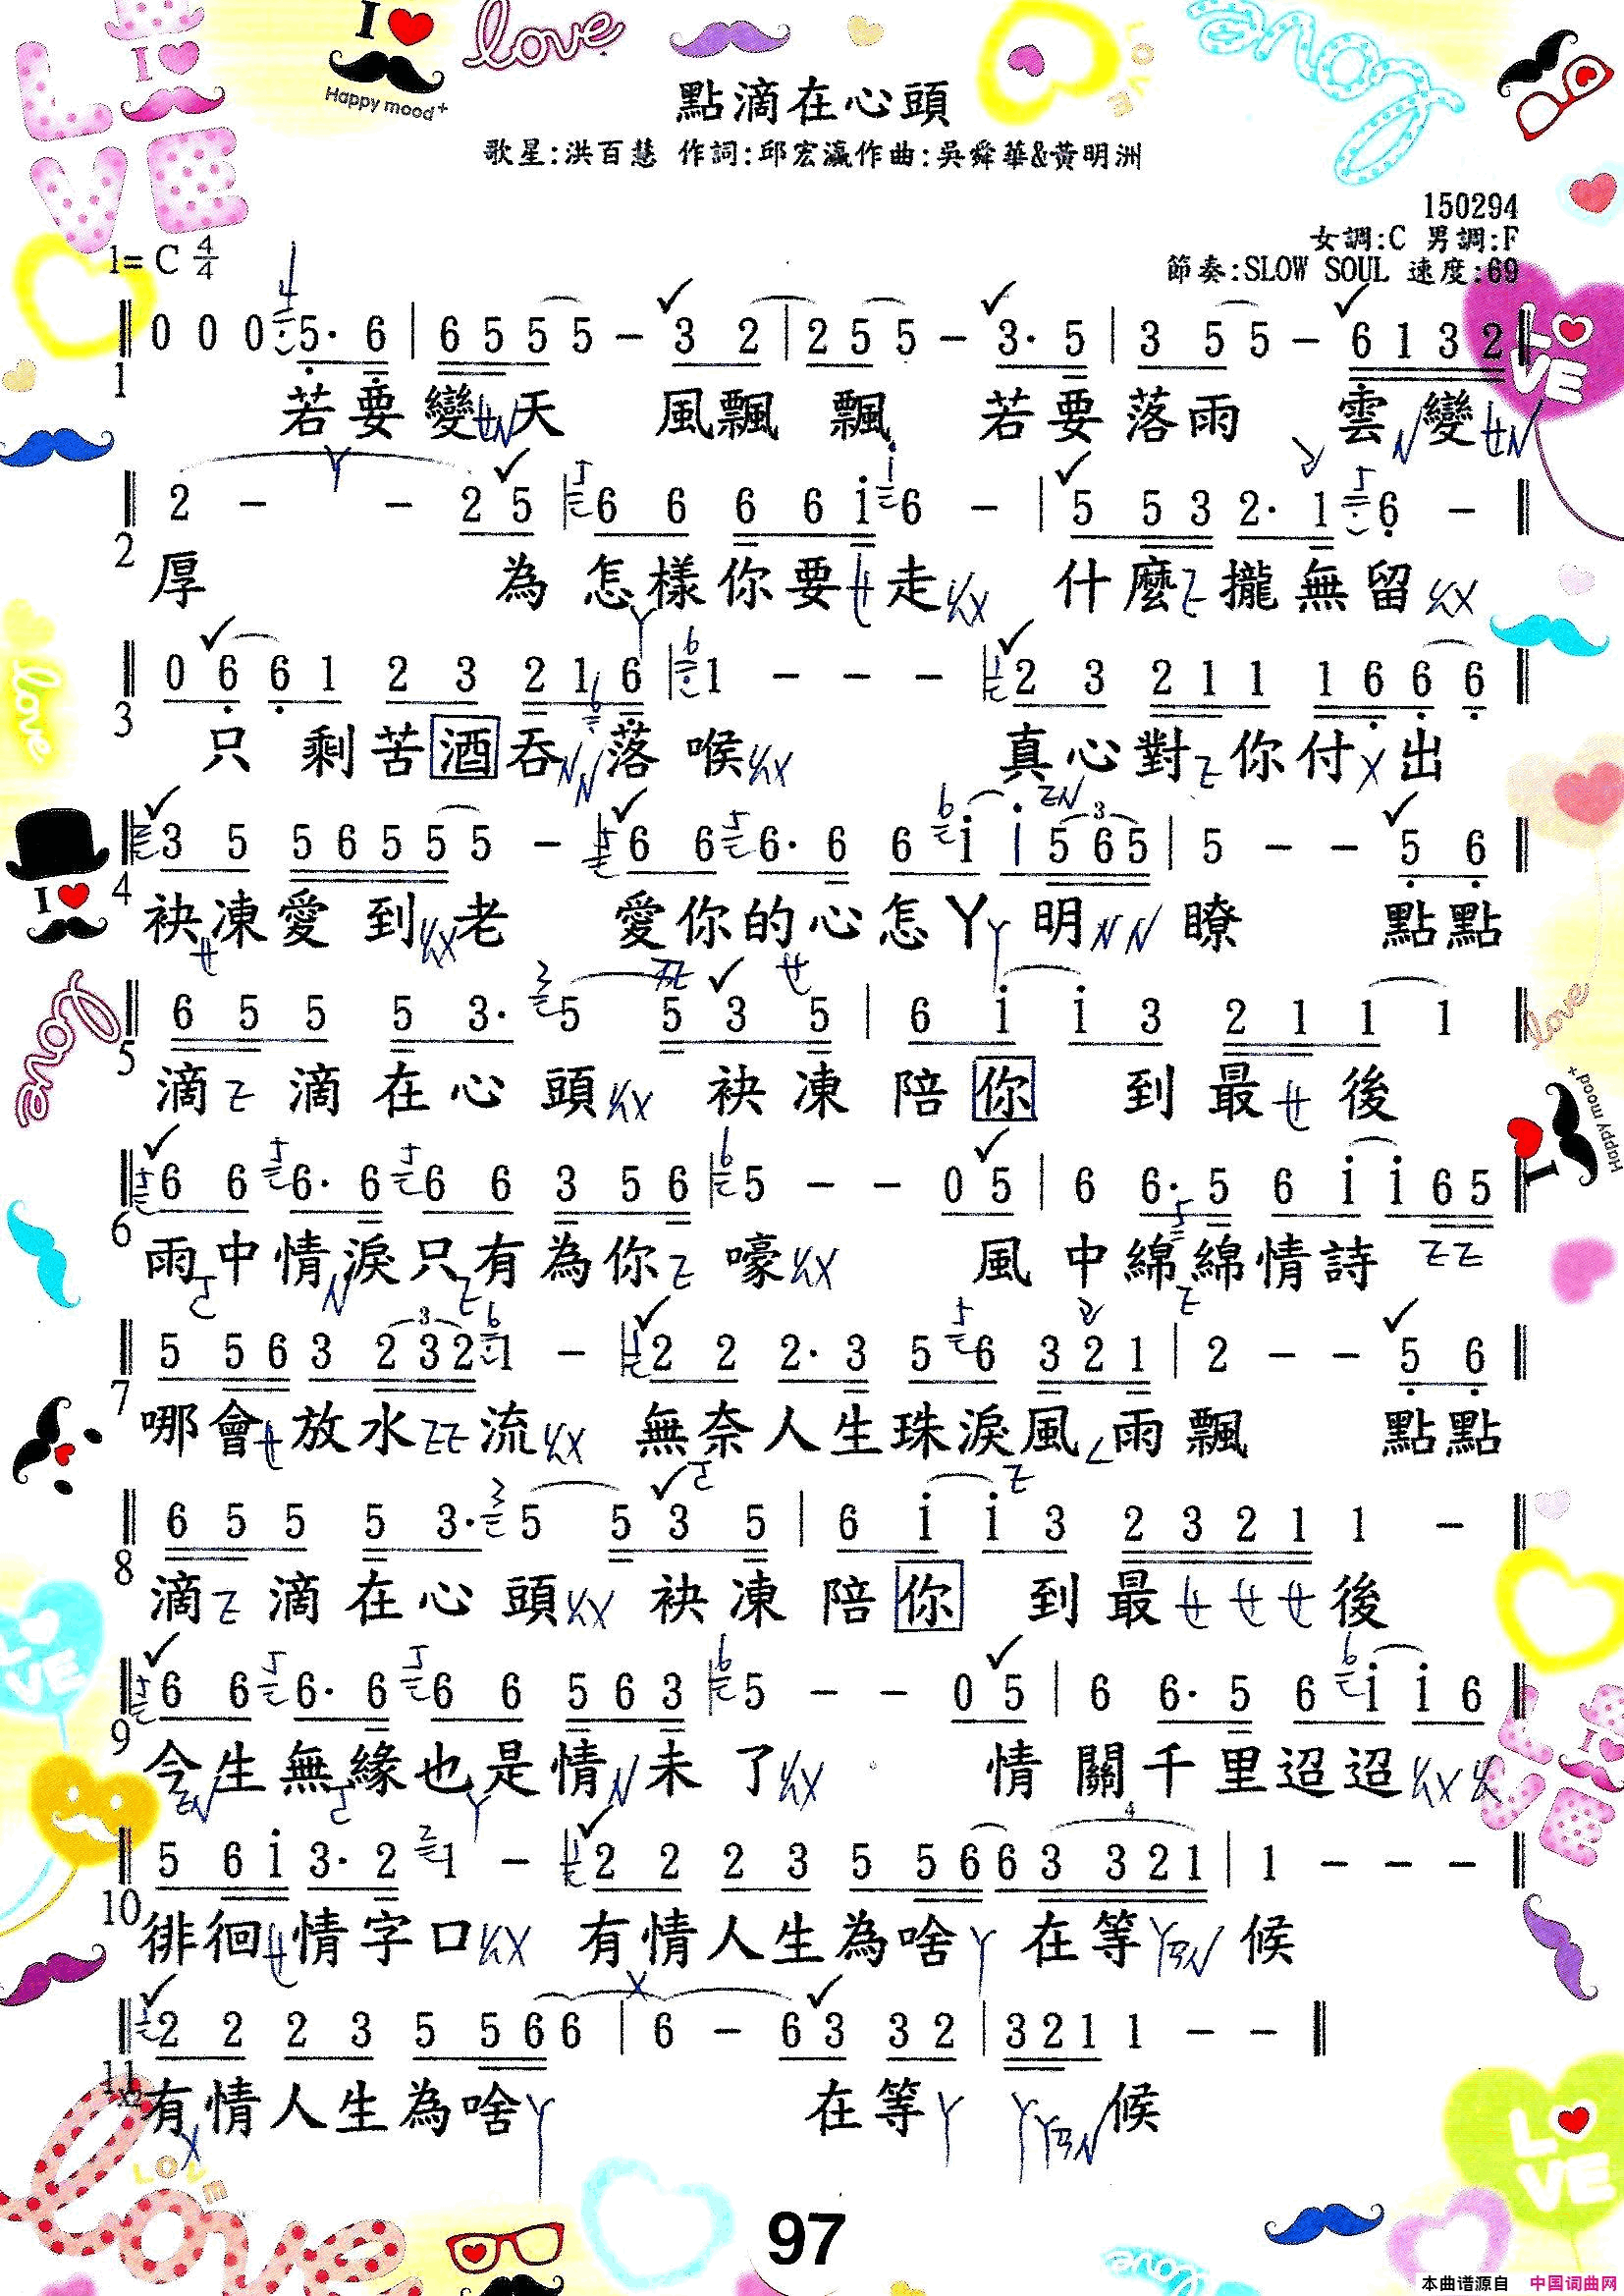 點滴在心頭
歌星:洪百慧 作詞:邱宏瀛作曲:吳舜華&黃明洲
150294
女調:C 男調:F
1= C 4/4
節奏:SLOW SOUL 速度:69
0 0 0 5· 6 | 6 5 5 5 – 3 2 | 2 5 5 – 3· 5 | 3 5 5 – 6 1 3 2
1
若要變天 風飄飄 若要落雨 雲變
2 – – 2 5 | 6 6 6 6 i 6 – | 5 5 3 2· 1 6 –
2
厚 為怎樣你要走 什麼攏無留
0 6 6 1 2 3 2 1 6 | 1 – – – | 2 3 2 1 1 1 6 6 6
3
只剩苦酒吞落喉 真心對你付出
3 5 5 6 5 5 5 – | 6 6 6· 6 6 i i 5 6 5 | 5 – – 5 6
4
袂凍愛到老 愛你的心怎ㄚ明瞭 點點
6 5 5 5 3· 5 5 3 5 | 6 i i 3 2 1 1 1
5
滴滴在心頭 袂凍陪你到最後
6 6 6· 6 6 6 3 5 6 | 5 – – 0 5 | 6 6· 5 6 i i 6 5
6
雨中情淚只有為你嚎 風中綿綿情詩
5 5 6 3 2 3 2 1 – | 2 2 2· 3 5 6 3 2 1 | 2 – – 5 6
7
哪會放水流 無奈人生珠淚風雨飄 點點
6 5 5 5 3· 5 5 3 5 | 6 i i 3 2 3 2 1 1 –
8
滴滴在心頭 袂凍陪你到最後
6 6 6· 6 6 6 5 6 3 | 5 – – 0 5 | 6 6· 5 6 i i 6
9
今生無緣也是情未了 情關千里迢迢
5 6 i 3· 2 1 – | 2 2 2 3 5 5 6 6 3 3 2 1 | 1 – – –
10
徘徊情字口 有情人生為啥在等候
2 2 2 3 5 5 6 6 | 6 – 6 3 3 2 | 3 2 1 1 – –
11
有情人生為啥 在等候
97
本曲谱源自 中国词曲网
I
Happy mood+
love
LOVE